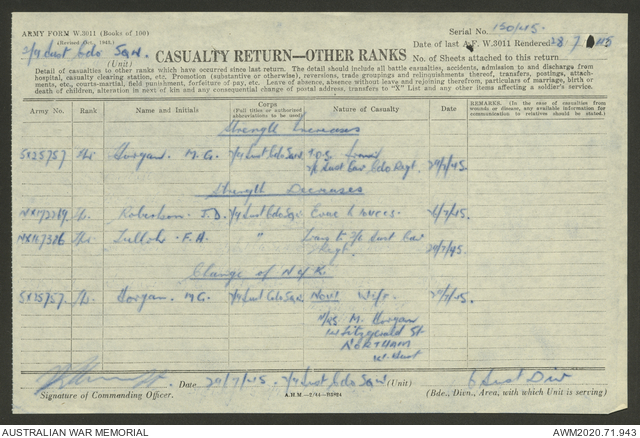 ARMY FORM W.3011 (Books of 100)
(Revised Oct. 1943.)
Serial No. 150/45
2/4 Aust Cdo Sqn.
(Unit)
CASUALTY RETURN—OTHER RANKS
Date of last A.F. W.3011 Rendered 28.7.45
No. of Sheets attached to this return
Detail of casualties to other ranks which have occurred since last return. The detail should include all battle casualties, accidents, admission to and discharge from
hospital, casualty clearing station, etc. Promotion (substantive or otherwise), reversions, trade groupings and relinquishments thereof, transfers, postings, attach-
ments, etc., courts-martial, field punishment, forfeiture of pay, etc. Leave of absence, absence without leave and rejoining therefrom, particulars of marriage, birth or
death of children, alteration in next of kin and any consequential change of postal address, transfers to "X" List and any other items affecting a soldier's service.
Army No. Rank Name and Initials Corps (Full titles or authorized abbreviations to be used) Nature of Casualty Date of Casualty REMARKS. (In the case of casualties from wounds or disease, any available information for communication to relatives should be stated.)
Strength Increases
SX25757 Tpr Horgan. M.G. 2/4 Aust Cdo Sqn T.O.S. from
2/ Aust Cav Cdo Regt. 29/7/45.
Strength Decreases
Tpr Robertson. J.D. 2/4 Aust Cdo Sqn Evac 6/7/45.
Tpr Tulloh. F.A. " to 2/ Aust Cav
Regt 29/7/45
Change of N of K.
SX25757. Tpr Horgan. M.G. 2/4 Aust Cdo Sqn. Now:- Wife. 29/7/45.
Mrs M. Horgan
Fitzgerald St
NORTHAM
W. Aust
Date 29/7/45. 2/4 Aust Cdo Sqn (Unit) 6 Aust Div
Signature of Commanding Officer. (Bde., Divn., Area, with which Unit is serving)
AUSTRALIAN WAR MEMORIAL
AWM2020.71.943